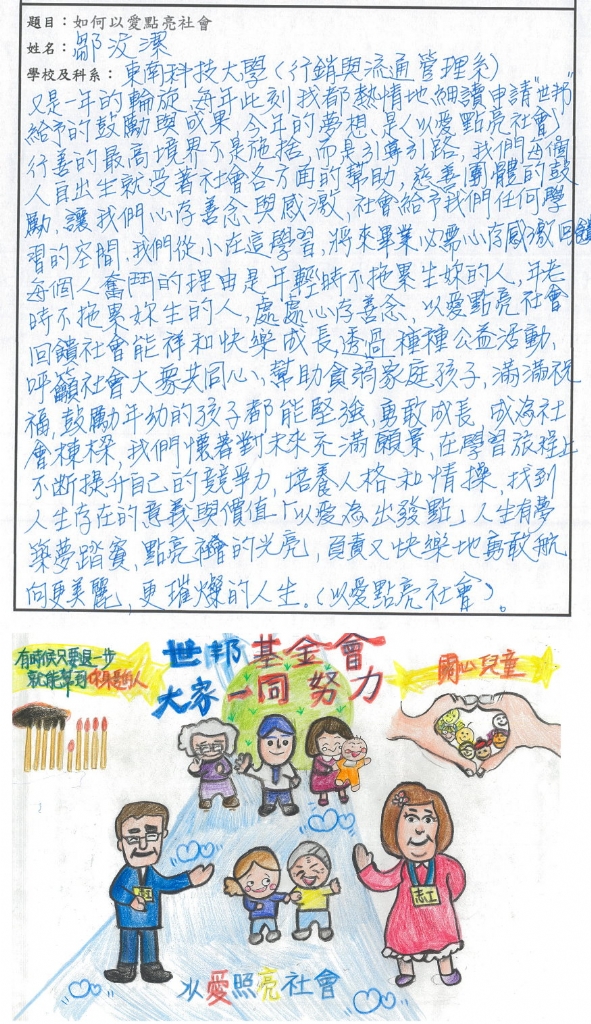 題目：如何以愛點亮社會
姓名：鄒汶潔
學校及科系：東南科技大學（行銷與流通管理系）
又是一年的輪旋，每年此刻我都熱情地細讀申請"世邦"
給予的鼓勵與成果，今年的夢想、是（以愛點亮社會）
行善的最高境界不是施捨，而是引導引路，我們每個
人自出生就受著社會各方面的幫助，慈善團體的鼓
勵，讓我們心存善念與感激，社會給予我們任何學
習的空間，我們從小在這學習，將來畢業必需心存感激回饋
每個人奮鬥的理由是年輕時不拖累生妳的人，年老
時不拖累妳生的人，處處心存善念，以愛點亮社會
回饋社會能祥和快樂成長，透過種種公益活動，
呼籲社會大眾共同心，幫助貧弱家庭孩子，滿滿祝
福，鼓勵年幼的孩子都能堅強，勇敢成長 成為社
會棟樑，我們懷著對未來充滿願景，在學習旅程上
不斷提升自己的競爭力，培養人格和情操，找到
人生存在的意義與價值「以愛為出發點」人生有夢
築夢踏實，點亮社會的光亮，負責又快樂地勇敢航
向更美麗，更璀燦的人生。（以愛點亮社會）。
世邦基金會
大家一同努力
有時候只要退一步
就能幫到你身邊的人
關心兒童
志工
志工
以愛照亮社會